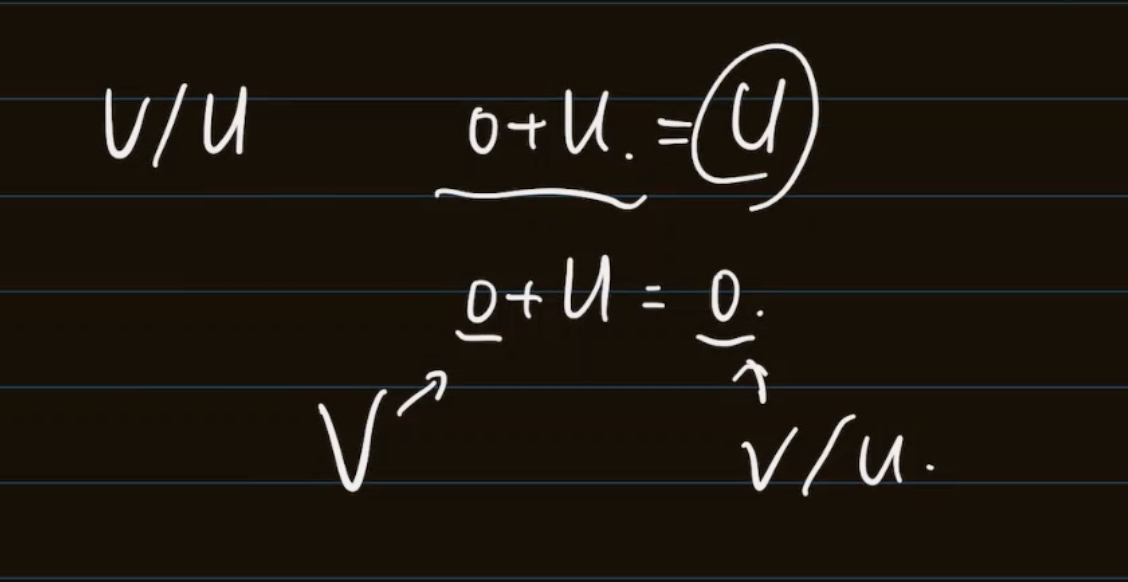 V/U 0+U. = U
0+U = 0.
V V/U.